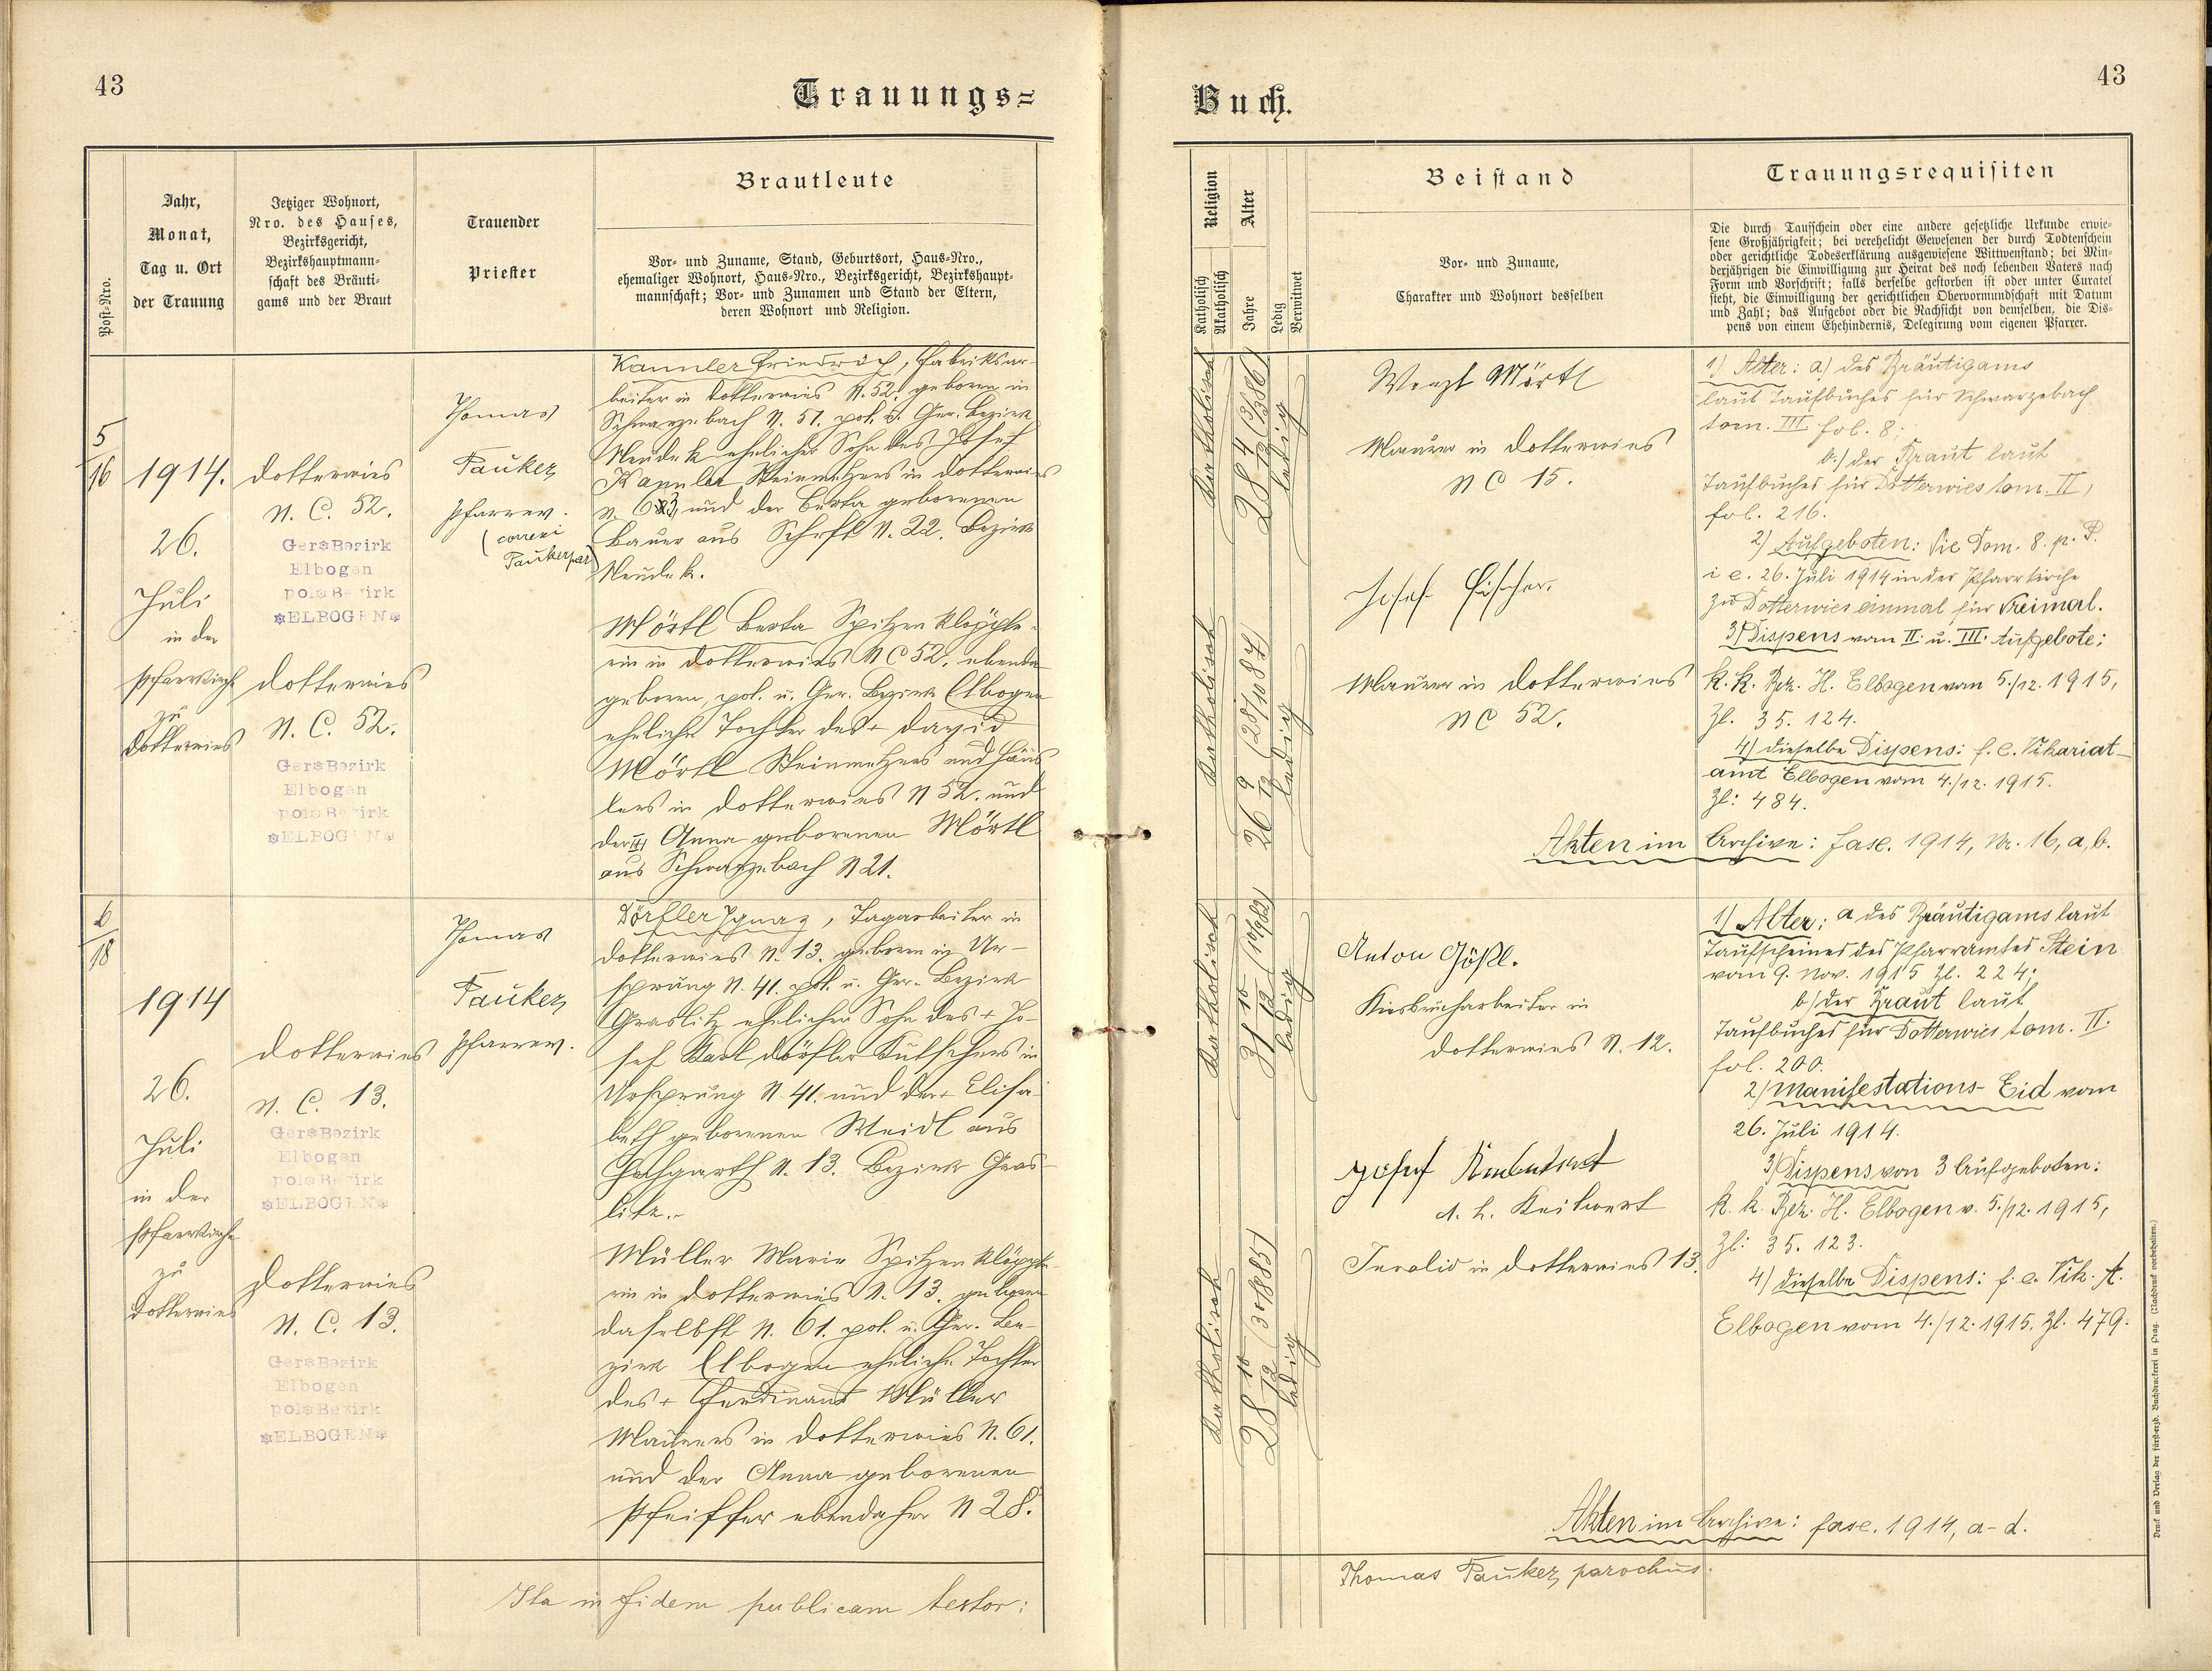 43
Trauungs=
Post-Nro.
Jahr,
Monat,
Tag u. Ort
der Trauung
Jetziger Wohnort,
Nro. des Hauses,
Bezirksgericht,
Bezirkshauptmann-
schaft des Bräuti-
gams und der Braut
Trauender
Priester
Brautleute
Vor- und Zuname, Stand, Geburtsort, Haus-Nro.,
ehemaliger Wohnort, Haus-Nro., Bezirksgericht, Bezirkshaupt-
mannschaft; Vor- und Zunamen und Stand der Eltern,
deren Wohnort und Religion.
5
16
1914.
26.
Juli
in der
Pfarrkirche
zu
Dotterwies
Dotterwies
N. C. 52.
Ger Bezirk
Elbogen
pol Bezirk
ELBOGEN
Dotterwies
N. C. 52.
Ger Bezirk
Elbogen
pol Bezirk
ELBOGEN
Thomas
Tauker
Pfarrer.
(correxi
Tauker par)
Kannler Friedrich, Fabriksar-
beiter in Dotterwies N. 52. geboren in
Schwarzebach N. 51. pol. u. Ger. Bezirk
Neudek ehelicher Sohn des Josef
Kannler Steinmetzers in Dotterwies
und der Berta geborenen
Bauer aus N. 22. Bezirk
Neudek.
Mörtl Berta Spitzenklöpple-
rin in Dotterwies N C 52. ebenda
geboren, pol. u. Ger. Bezirk Elbogen
eheliche Tochter des + David
Mörtl Steinmetzers und Häus
lers in Dotterwies N 52. und
der Anna geborenen Mörtl
aus Schwarzebach N 21.
6
18
1914
26.
Juli
in der
Pfarrkirche
zu
Dotterwies
Dotterwies
N. C. 13.
Ger Bezirk
Elbogen
pol Bezirk
ELBOGEN
Dotterwies
N. C. 13.
Ger Bezirk
Elbogen
pol Bezirk
ELBOGEN
Thomas
Tauker
Pfarrer.
Dörfler Ignaz, Tagarbeiter in
Dotterwies N. 13. geboren in Ur-
sprung N. 41. pol. u. Ger. Bezirk
Graslitz ehelicher Sohn des + Jo-
sef Karl Dörfler Kutschers in
Ursprung N. 41. und der + Elisa-
beth geborenen Weidl aus
N. 13. Bezirk Gras-
litz.
Müller Marie Spitzenklöpple-
rin in Dotterwies N. 13. geboren
daselbst N. 61. pol. u. Ger. Be-
zirk Elbogen eheliche Tochter
des + Ferdinand Müller
Maurers in Dotterwies N. 61.
und der Anna geborenen
Pfeiffer ebendaher N 28.
Ita in fidem publicam testor:
Buch.
43
Religion
Katholisch
Akatholisch
Alter
Jahre
Ledig
Verwitwet
Beistand
Vor- und Zuname,
Charakter und Wohnort desselben
Trauungsrequisiten
Die durch Taufschein oder eine andere gesetzliche Urkunde erwie-
sene Großjährigkeit; bei verehelicht Gewesenen der durch Todtenschein
oder gerichtliche Todeserklärung ausgewiesene Wittwenstand; bei Min-
derjährigen die Einwilligung zur Heirat des noch lebenden Vaters nach
Form und Vorschrift; falls derselbe gestorben ist oder unter Curatel
steht, die Einwilligung der gerichtlichen Obervormundschaft mit Datum
und Zahl; das Aufgebot oder die Nachsicht von demselben, die Dis-
pens von einem Ehehindernis, Delegirung vom eigenen Pfarrer.
Katholisch
28 4/12
ledig
Katholisch
26 9/12
ledig
Wenzl Mörtl
Maurer in Dotterwies
N C 15.
Josef Fischer.
Maurer in Dotterwies
N C 52.
1) Alter: a) des Bräutigams
laut Taufbuches für Schwarzebach
tom. III fol. 8;
b.) der Braut laut
Taufbuches für Dotterwies tom. II,
fol. 216.
2) Aufgeboten: Die Dom. 8. p. P.
i e. 26. Juli 1914 in der Pfarrkirche
zu Dotterwies einmal für dreimal.
3) Dispens vom II. u. III. Aufgebote:
k. k. Bez. H. Elbogen vom 5./12. 1915,
Zl. 35. 124.
4) dieselbe Dispens: f. e. Vikariat-
amt Elbogen vom 4./12. 1915.
Zl: 484.
Akten im Archive: fasc. 1914, Nr. 16, a, b.
Katholisch
31 10/12
ledig
Katholisch
28 10/12
ledig
Anton Gößl.
Kiesbrucharbeiter in
Dotterwies N. 12.
Josef
Invalid in Dotterwies 13.
1) Alter: a des Bräutigams laut
Taufscheines des Pfarramtes Stein
vom 9. Nov. 1915 Zl. 224;
b) der Braut laut
Taufbuches für Dotterwies tom. II.
fol. 200.
2) Manifestations-Eid vom
26. Juli 1914.
3) Dispens von 3 Aufgeboten:
k. k. Bez. H. Elbogen v. 5./12. 1915,
Zl: 35. 123.
4) dieselbe Dispens: f. e. Vik. A.
Elbogen vom 4./12. 1915. Zl. 479.
Akten im Archive: fasc. 1914, a-d.
Thomas Tauker, parochus.
Druck und Verlag der fürsterzb. Buchdruckerei in Prag. (Nachdruck vorbehalten.)